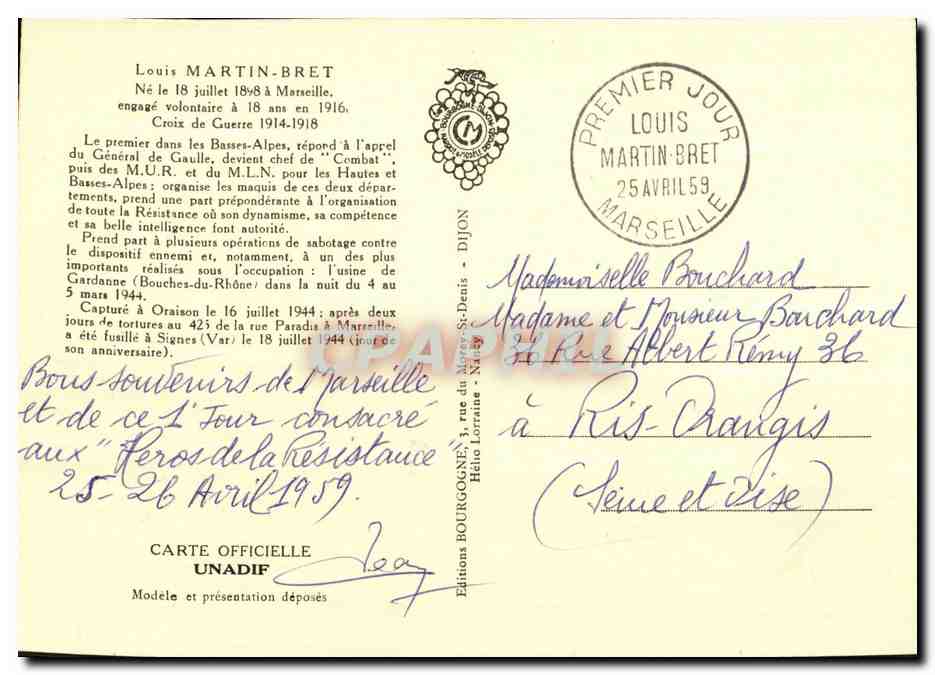 Louis MARTIN-BRET
Né le 18 juillet 1898 à Marseille,
engagé volontaire à 18 ans en 1916.
Croix de Guerre 1914-1918
Le premier dans les Basses-Alpes, répond à l'appel
du Général de Gaulle, devient chef de "Combat",
puis des M.U.R. et du M.L.N. pour les Hautes et
Basses-Alpes ; organise les maquis de ces deux dépar-
tements, prend une part prépondérante à l'organisation
de toute la Résistance où son dynamisme, sa compétence
et sa belle intelligence font autorité.
Prend part à plusieurs opérations de sabotage contre
le dispositif ennemi et, notamment, à un des plus
importants réalisés sous l'occupation : l'usine de
Gardanne (Bouches-du-Rhône) dans la nuit du 4 au
5 mars 1944.
Capturé à Oraison le 16 juillet 1944 ; après deux
jours de tortures au 425 de la rue Paradis à Marseille,
a été fusillé à Signes (Var) le 18 juillet 1944 (jour de
son anniversaire).
Bons souvenirs de Marseille
et de ce 1er Jour consacré
aux "Heros de la Résistance"
25-26 Avril 1959.
Jean
CARTE OFFICIELLE
UNADIF
Modèle et présentation déposés
Editions BOURGOGNE, 3, rue du Morey-St-Denis - DIJON
Hélio Lorraine - Nancy
CM
PREMIER JOUR
LOUIS
MARTIN-BRET
25 AVRIL 59
MARSEILLE
Mademoiselle Bouchard
Madame et Monsieur Bouchard
36 Rue Albert Rémy 36
à Ris-Orangis
(Seine et Oise)
CPAPHIL